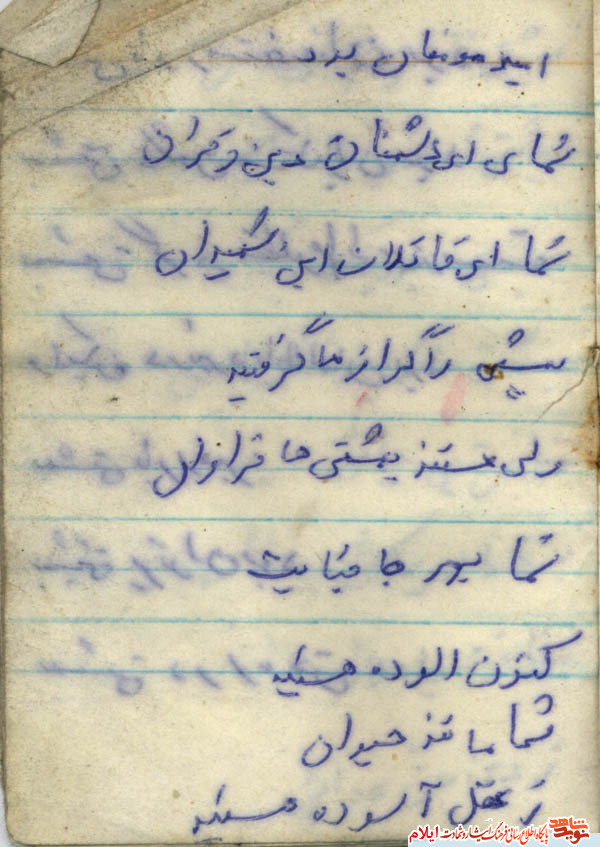 امیر مومنان بود
شمای ای دشمنان دین و قران
شما ای قاتلان این شهیدان
بهشتی را گر از ما گرفتید
ولی هستند بهشتی ها فراوان
شما بهر جنایت
کنون الوده هستید
شما مانند حیوان
ز عقل آسوده هستید
نوید شاهد
پایگاه اطلاع رسانی فرهنگ ایثار و شهادت ایلام